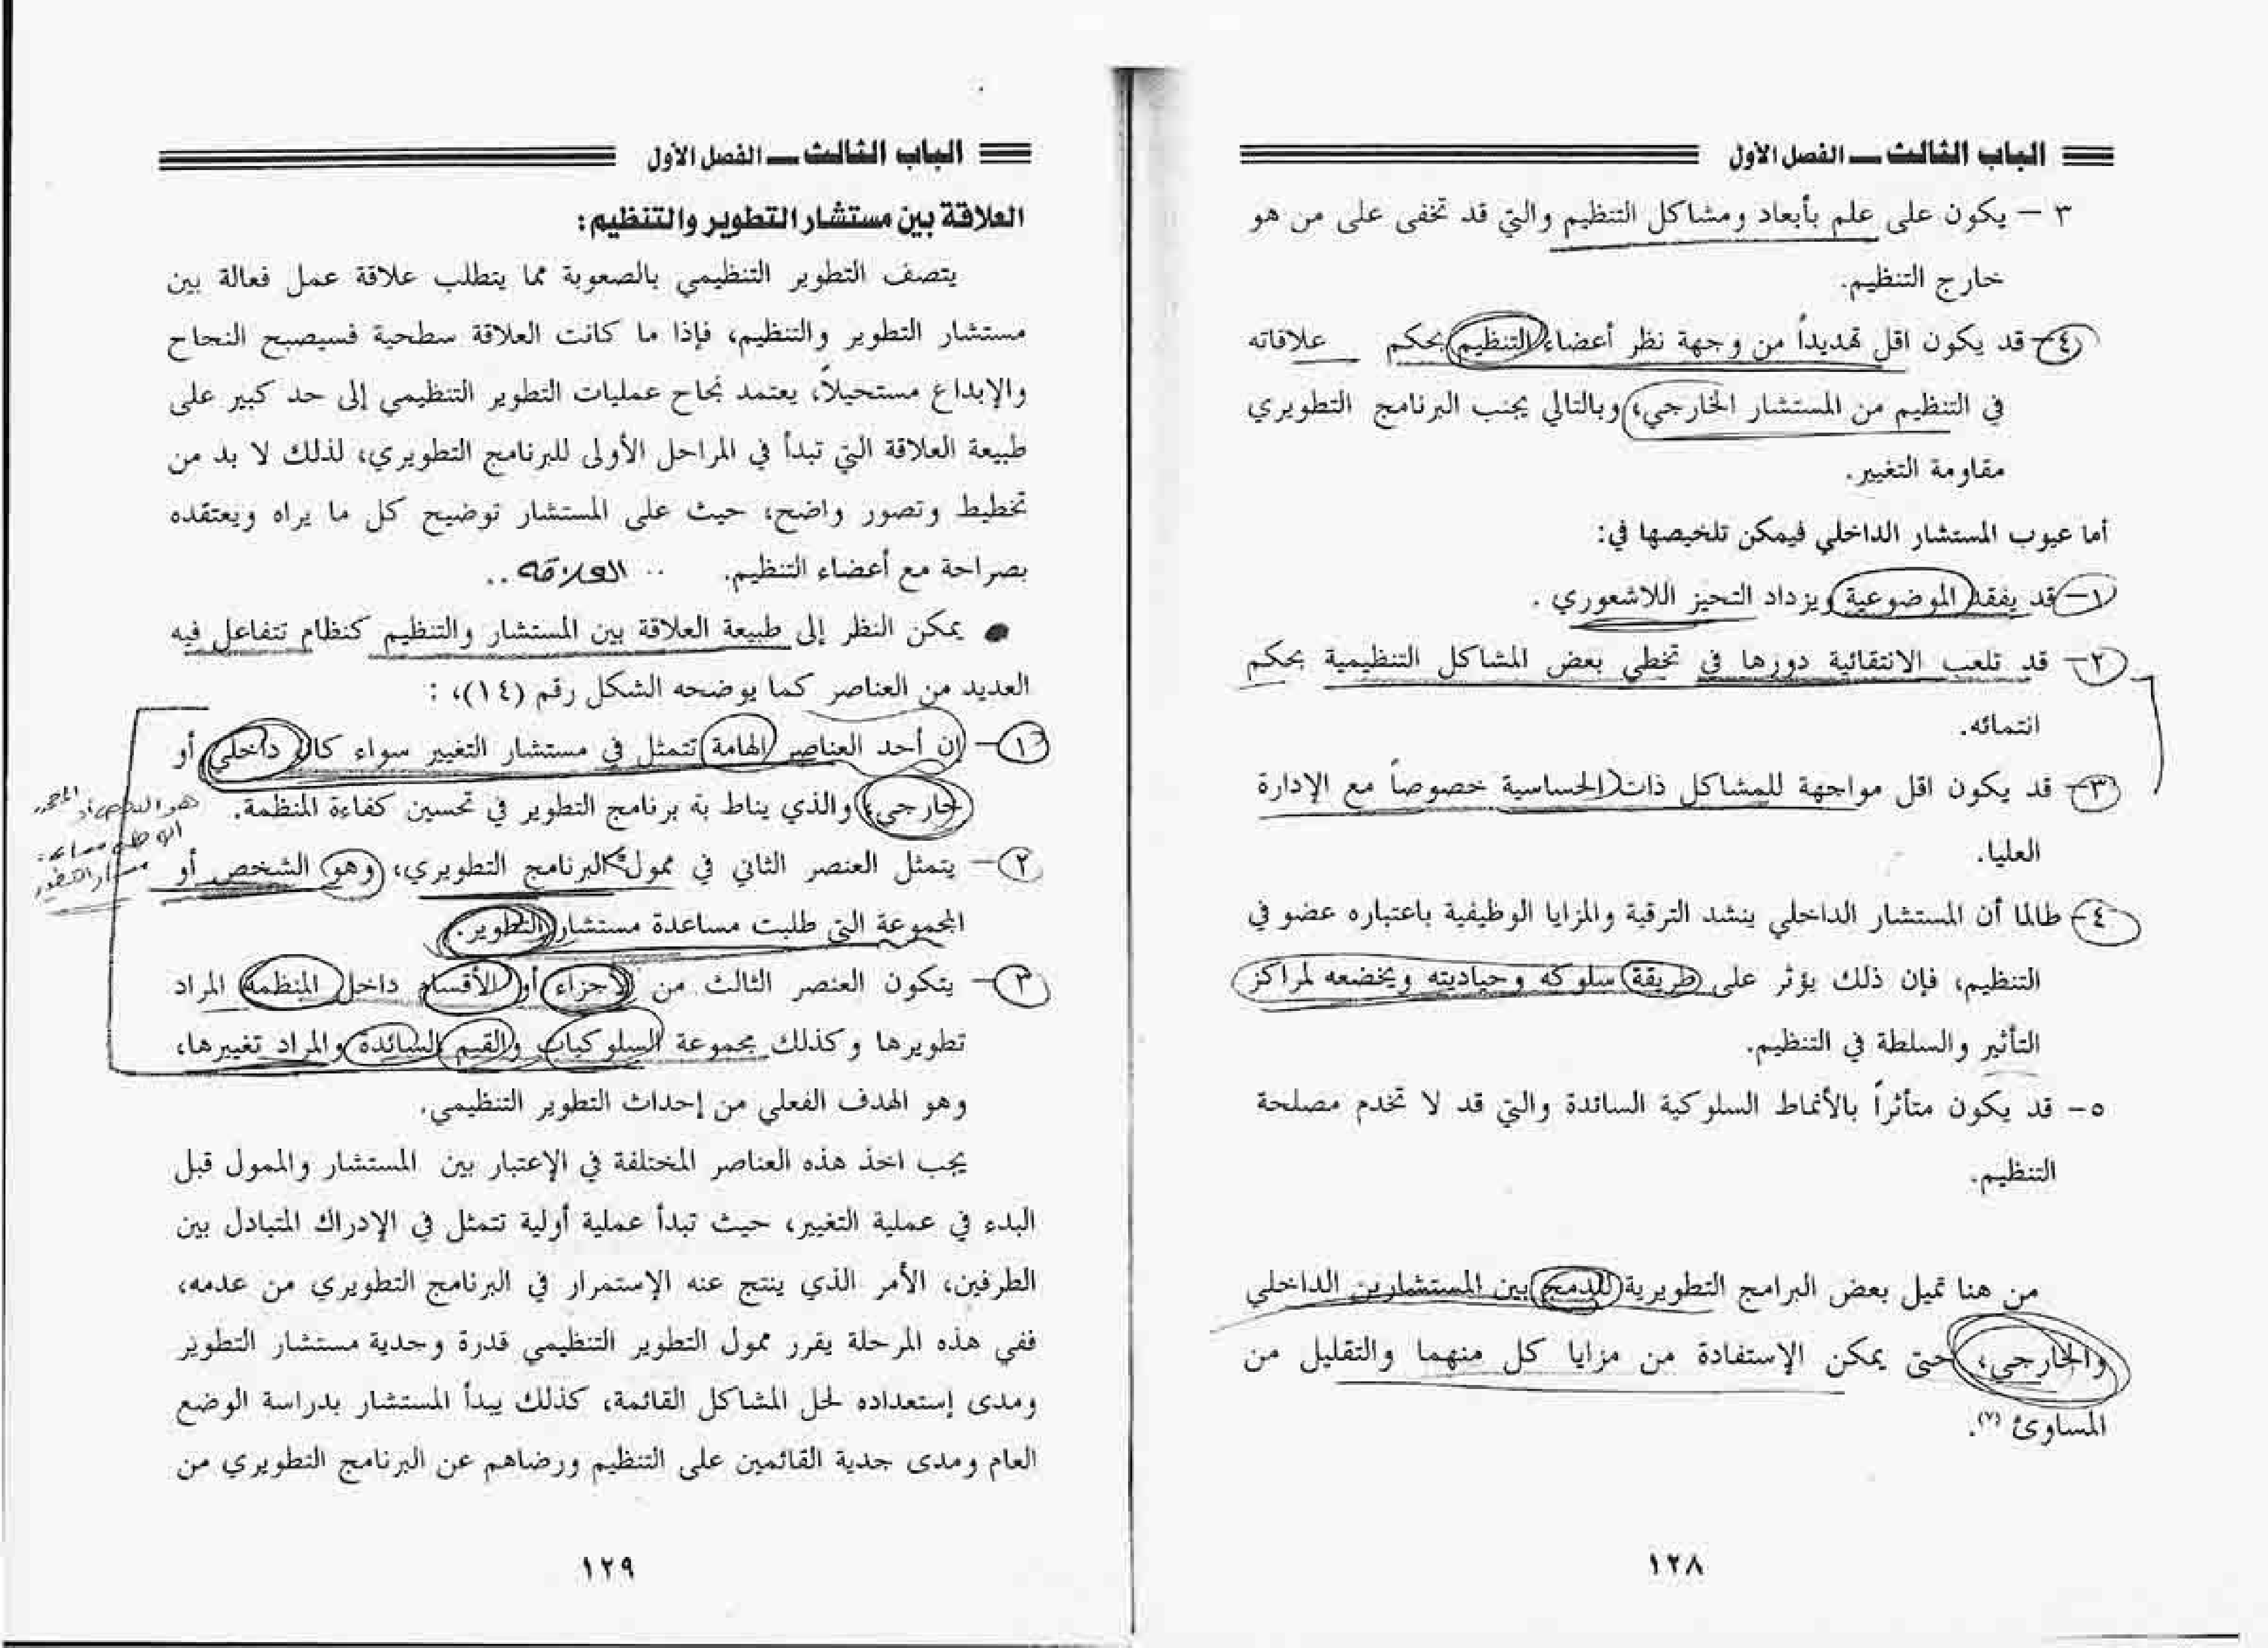 الباب الثالث ــ الفصل الأول
٣ – يكون على علم بأبعاد ومشاكل التنظيم والتي قد تخفى على من هو
خارج التنظيم.
٤- قد يكون اقل تهديداً من وجهة نظر أعضاء التنظيم بحكم علاقاته
في التنظيم من المستشار الخارجي، وبالتالي يجنب البرنامج التطويري
مقاومة التغيير.
أما عيوب المستشار الداخلي فيمكن تلخيصها في:
١- قد يفقد الموضوعية ويزداد التحيز اللاشعوري .
٢- قد تلعب الانتقائية دورها في تخطي بعض المشاكل التنظيمية بحكم
انتمائه.
٣- قد يكون اقل مواجهة للمشاكل ذات الحساسية خصوصاً مع الإدارة
العليا.
٤- طالما أن المستشار الداخلي ينشد الترقية والمزايا الوظيفية باعتباره عضو في
التنظيم، فإن ذلك يؤثر على طريقة سلوكه وحياديته ويخضعه لمراكز
التأثير والسلطة في التنظيم.
٥- قد يكون متأثراً بالأنماط السلوكية السائدة والتي قد لا تخدم مصلحة
التنظيم.
من هنا تميل بعض البرامج التطويرية للدمج بين المستشارين الداخلي
والخارجي، حتى يمكن الإستفادة من مزايا كل منهما والتقليل من
المساوئ (٧).
١٢٨
الباب الثالث ــ الفصل الأول
العلاقة بين مستشار التطوير والتنظيم:
يتصف التطوير التنظيمي بالصعوبة مما يتطلب علاقة عمل فعالة بين
مستشار التطوير والتنظيم، فإذا ما كانت العلاقة سطحية فسيصبح النجاح
والإبداع مستحيلاً، يعتمد نجاح عمليات التطوير التنظيمي إلى حد كبير على
طبيعة العلاقة التي تبدأ في المراحل الأولى للبرنامج التطويري، لذلك لا بد من
تخطيط وتصور واضح، حيث على المستشار توضيح كل ما يراه ويعتقده
بصراحة مع أعضاء التنظيم. .. العلاقة ..
● يمكن النظر إلى طبيعة العلاقة بين المستشار والتنظيم كنظام تتفاعل فيه
العديد من العناصر كما يوضحه الشكل رقم (١٤)، :
١- إن أحد العناصر الهامة تتمثل في مستشار التغيير سواء كان داخلي أو
خارجي، والذي يناط به برنامج التطوير في تحسين كفاءة المنظمة.
٢- يتمثل العنصر الثاني في ممول البرنامج التطويري، وهو الشخص أو
المجموعة التي طلبت مساعدة مستشار التطوير.
٣- يتكون العنصر الثالث من الأجزاء أو الأقسام داخل المنظمة المراد
تطويرها وكذلك مجموعة السلوكيات والقيم السائدة والمراد تغييرها،
وهو الهدف الفعلي من إحداث التطوير التنظيمي.
يجب اخذ هذه العناصر المختلفة في الإعتبار بين المستشار والممول قبل
البدء في عملية التغيير، حيث تبدأ عملية أولية تتمثل في الإدراك المتبادل بين
الطرفين، الأمر الذي ينتج عنه الإستمرار في البرنامج التطويري من عدمه،
ففي هذه المرحلة يقرر ممول التطوير التنظيمي قدرة وجدية مستشار التطوير
ومدى إستعداده لحل المشاكل القائمة، كذلك يبدأ المستشار بدراسة الوضع
العام ومدى جدية القائمين على التنظيم ورضاهم عن البرنامج التطويري من
١٢٩